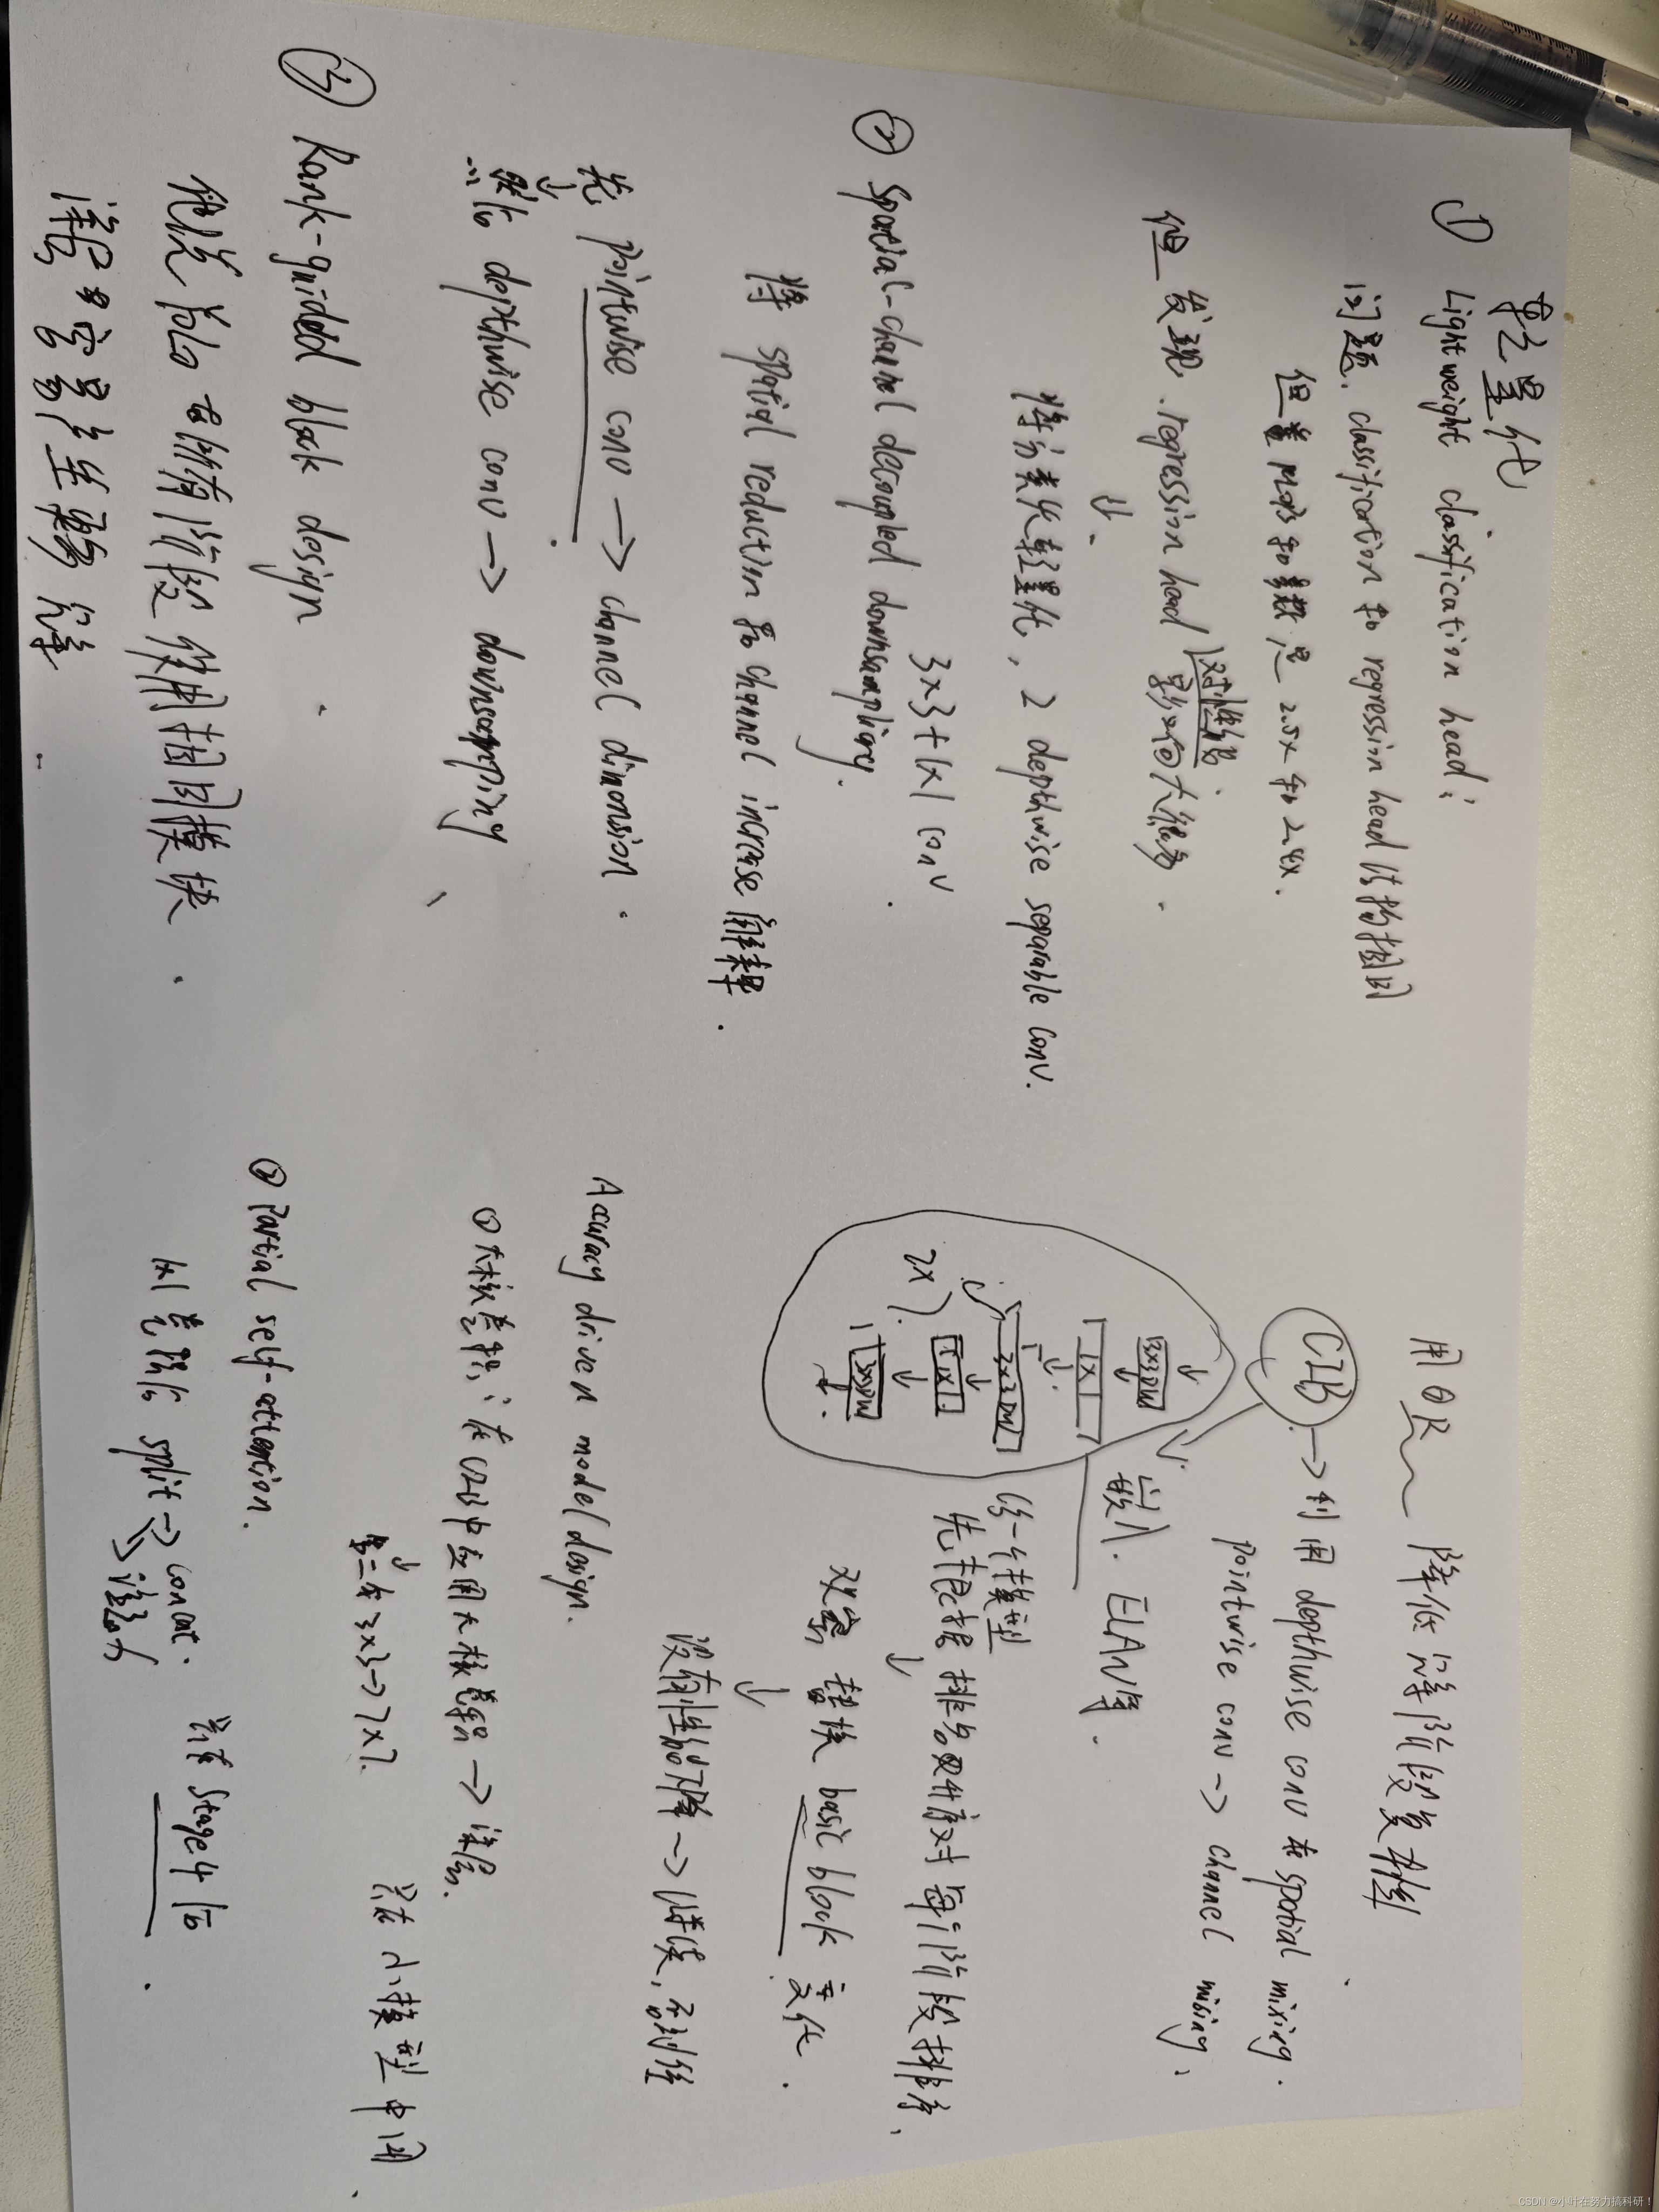 轻量化
① Lightweight classification head:
问题. classification 和 regression head 结构相同
但 FLOPs 和 参数 是 2.5x 和 2.4x.
但 发现. regression head 对性能影响很大
↓
将分类头轻量化, 2 depthwise separable conv.
3x3+1x1 conv
② Spacial-channel decoupled downsampling.
将 spatial reduction 和 channel increase 解耦.
先 pointwise conv → channel dimension.
↓
然后 depthwise conv → downsampling
③ Rank-guided block design.
他说 YOLO 在所有阶段使用相同模块.
用 降低 阶段复杂
CIB → 利用 depthwise conv 在 spatial mixing.
pointwise conv → channel mixing.
↓
嵌入. ELAN等.
3x3DW
↓
1x1
↓
3x3DW
↓
1x1
↓
3x3DW
2x
给一个模型
先根据 对每个阶段排序,
↓
观察 替换 basic block 变化.
↓
没有性能下降 → 继续,
Accuracy driven model design.
①大核卷积: 在CIB中应用大核卷积 → 深层.
↓
第二层 3x3→7x7. 只在 小模型中用.
② Partial self-attention.
1x1 卷积后 split → concat.
→ 注意力
只在 Stage4 后.
CSDN @小叶在努力搞科研！